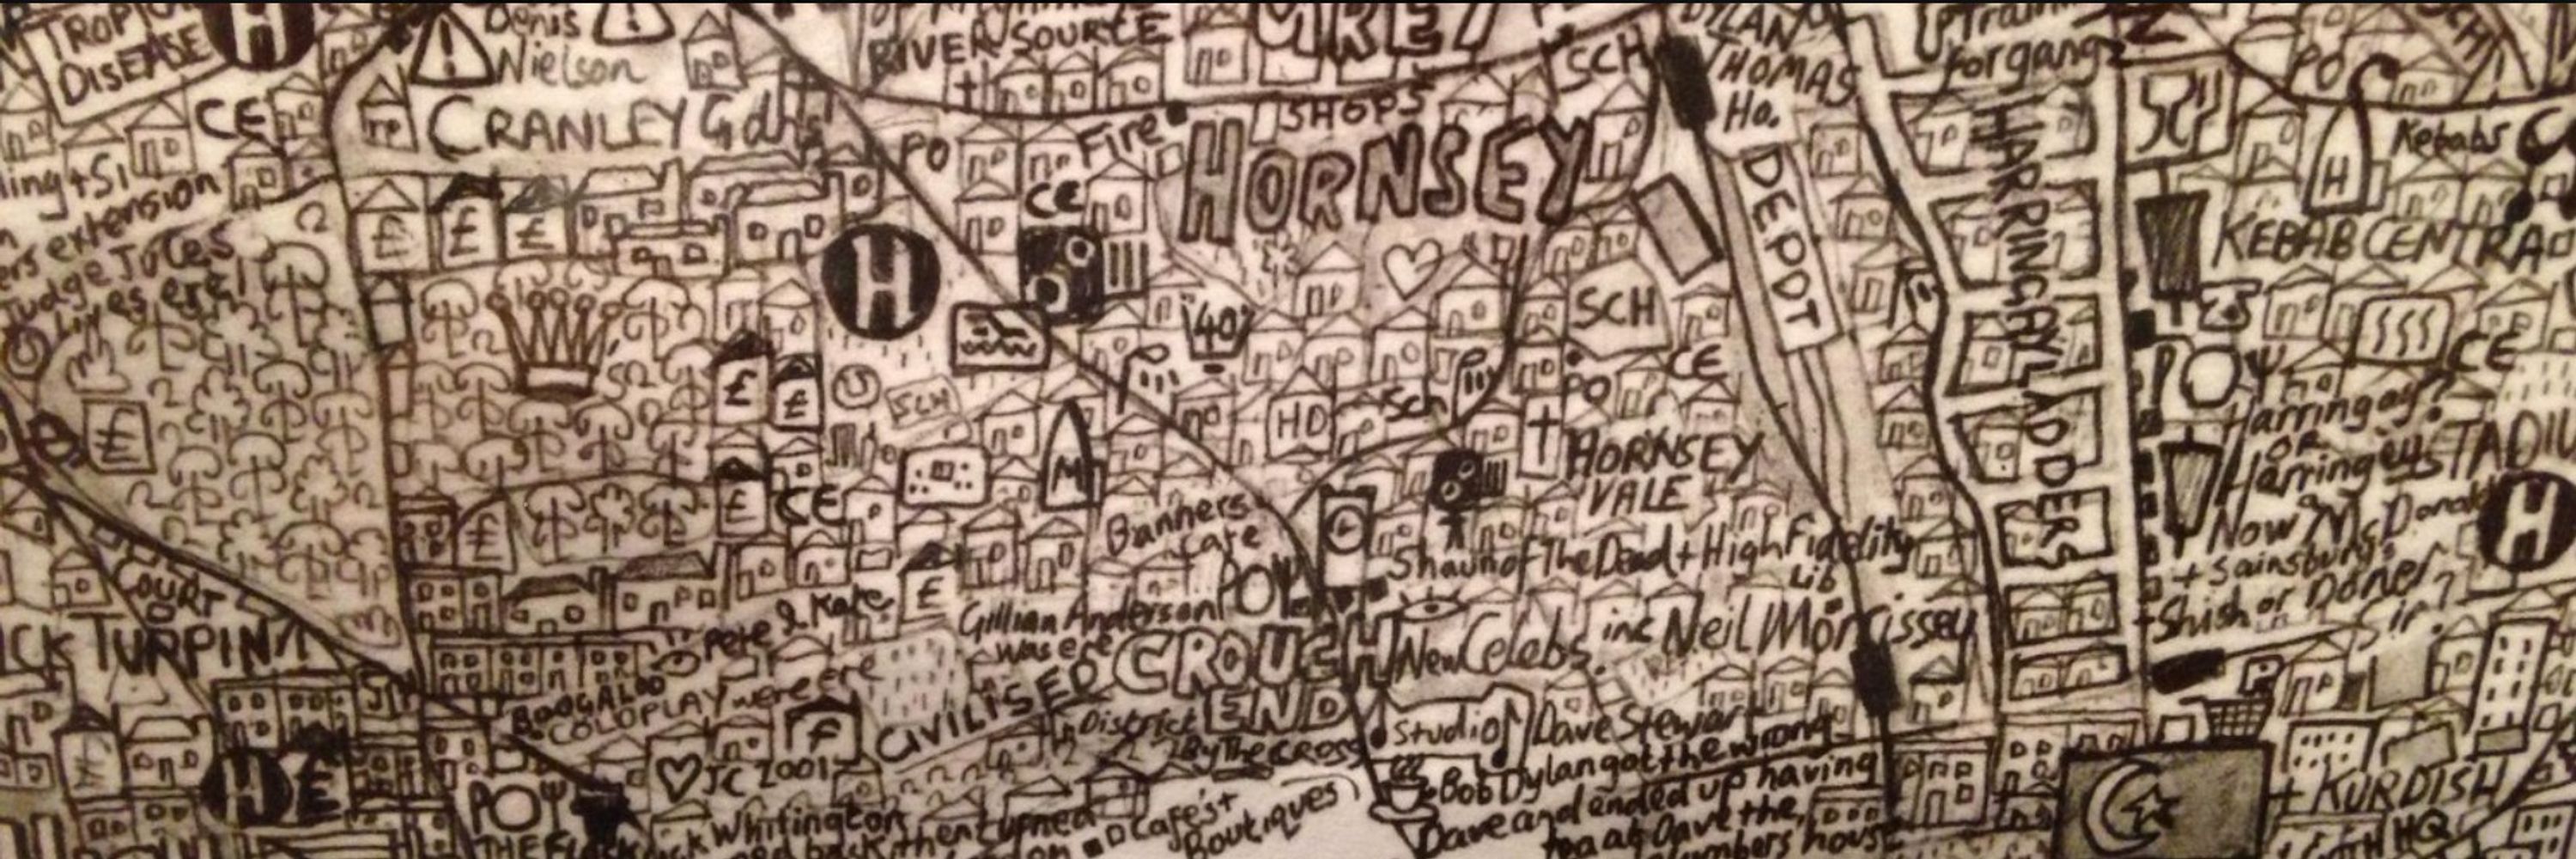 TROP
DISEASE
H
Denis
Nielson
CRANLEY Gdns
CE
extension
Judge Jules
lives ere!
£
£
£
£
Court
TURPIN
H
£
RIVER SOURCE
PO
Fire
SHOPS
HORNSEY
CE
H
40
SCH
HD
Sch
M
£
£
£
CE
£
£
Banners
Cafe
Pete & Kate
£
Gillian Anderson
was ere
BOOGALOO
COLDPLAY were ere
CIVILISED
CROUCH
END
District
By The CROSS
JC 2001
THE Flask
Whitington
back then turned
Cafe's +
Boutiques
SCH
DYLAN
THOMAS
Ho.
DEPOT
SCH
PO
CE
HORNSEY
VALE
Shaun of The Dead + High Fidelity
Lib
New Celebs. inc Neil Morrissey
Studio
Dave Stewart
Bob Dylan got the wrong
Dave and ended up having
tea at Dave the
plumbers house
for gang
HARRINGAY LADDERS
PO
Kebabs
H
KEBAB CENTRA
CE
Harringay?
OR
Harringey
STADIU
Now McDonald
+ Sainsbury's
Shish or Doner
ir?
H
P
+ KURDISH
HQ